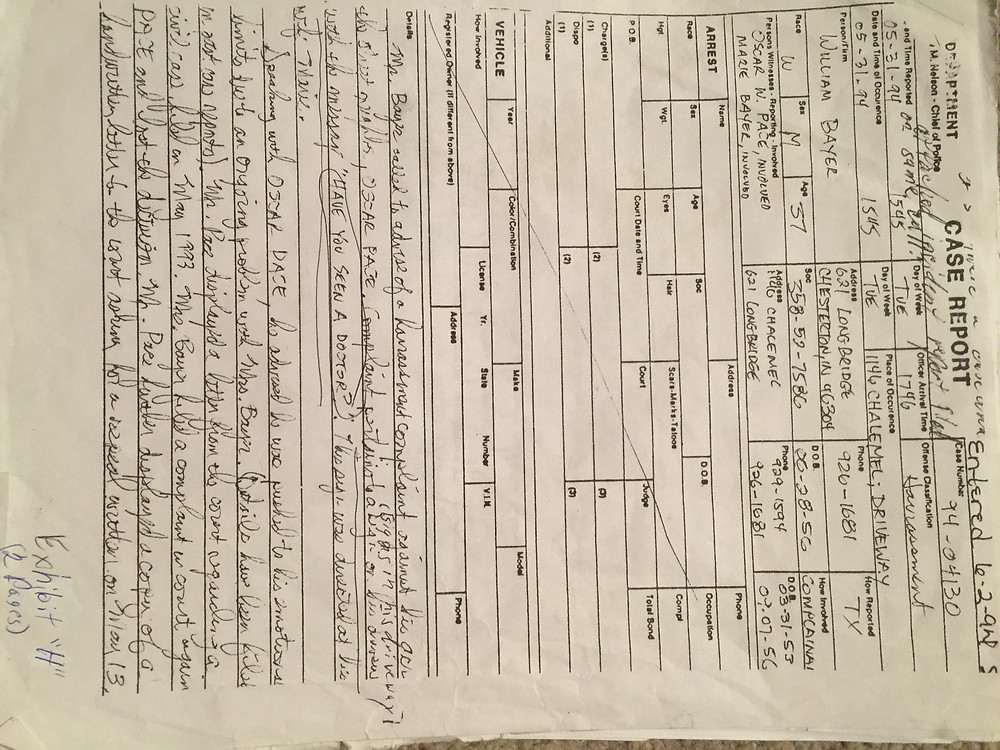 Entered 6-2-94
DEPARTMENT
CASE REPORT
M. Nelson - Chief of Police
Case Number
94-04130
and Time Reported
05-31-94
1545
Day of Week
TUE
Officer Arrival Time
1746
Offense Classification
Harassment
Date and Time of Occurence
05-31-94
1545
Day of Week
TUE
Place of Occurence
1146 CHALEMEL; DRIVEWAY
How Reported
TX
Person/Firm
WILLIAM BAYER
Address
621 LONGBRIDGE
CHESTERTON IN 46304
Phone
926-1681
How Involved
COMPLAINANT
Race
W
Sex
M
Age
37
Soc
358-52-7586
D.O.B.
06-28-56
Persons Witnesses - Reporting - Involved
OSCAR N. PACE, INVOLVED
MARIE BAYER, INVOLVED
Address
1146 CHALEMEL
621 LONGBRIDGE
Phone
929-1594
926-1681
D.O.B.
03-31-53
07-07-56
ARREST
Name
Address
Phone
Race
Sex
Age
Soc
D.O.B.
Occupation
Hgt
Wgt.
Eyes
Hair
Scars-Marks-Tatoos
Compl
P.O.B.
Court Date and Time
Court
Judge
Total Bond
Charge(s)
(1)
(2)
(3)
Dispo
(1)
(2)
(3)
Additional
VEHICLE
Year
Color/Combination
Make
Model
How Involved
License
Yr.
State
Number
V.I.N.
Registered Owner (If different from above)
Address
Phone
Details
Mr. Bayer called to advise of a harassment complaint against his
neighbor, OSCAR PACE. Complaint pertained to a
(signs in his driveway)
with the message "HAVE YOU SEEN A DOCTOR?" This sign was directed at his
wife, Marie.
Speaking with OSCAR PACE, he advised he was
due to an ongoing problem with Mrs. Bayer. Details have been filed
in past case reports. Mr. Pace displayed a letter from the court regarding a
civil case filed on May 1993. Mrs. Bayer filed a complaint in court against
PACE and lost the decision. Mr. Pace further displayed a copy of a
handwritten letter to the court asking for a written on May 13
Exhibit "H"
(2 Pages)